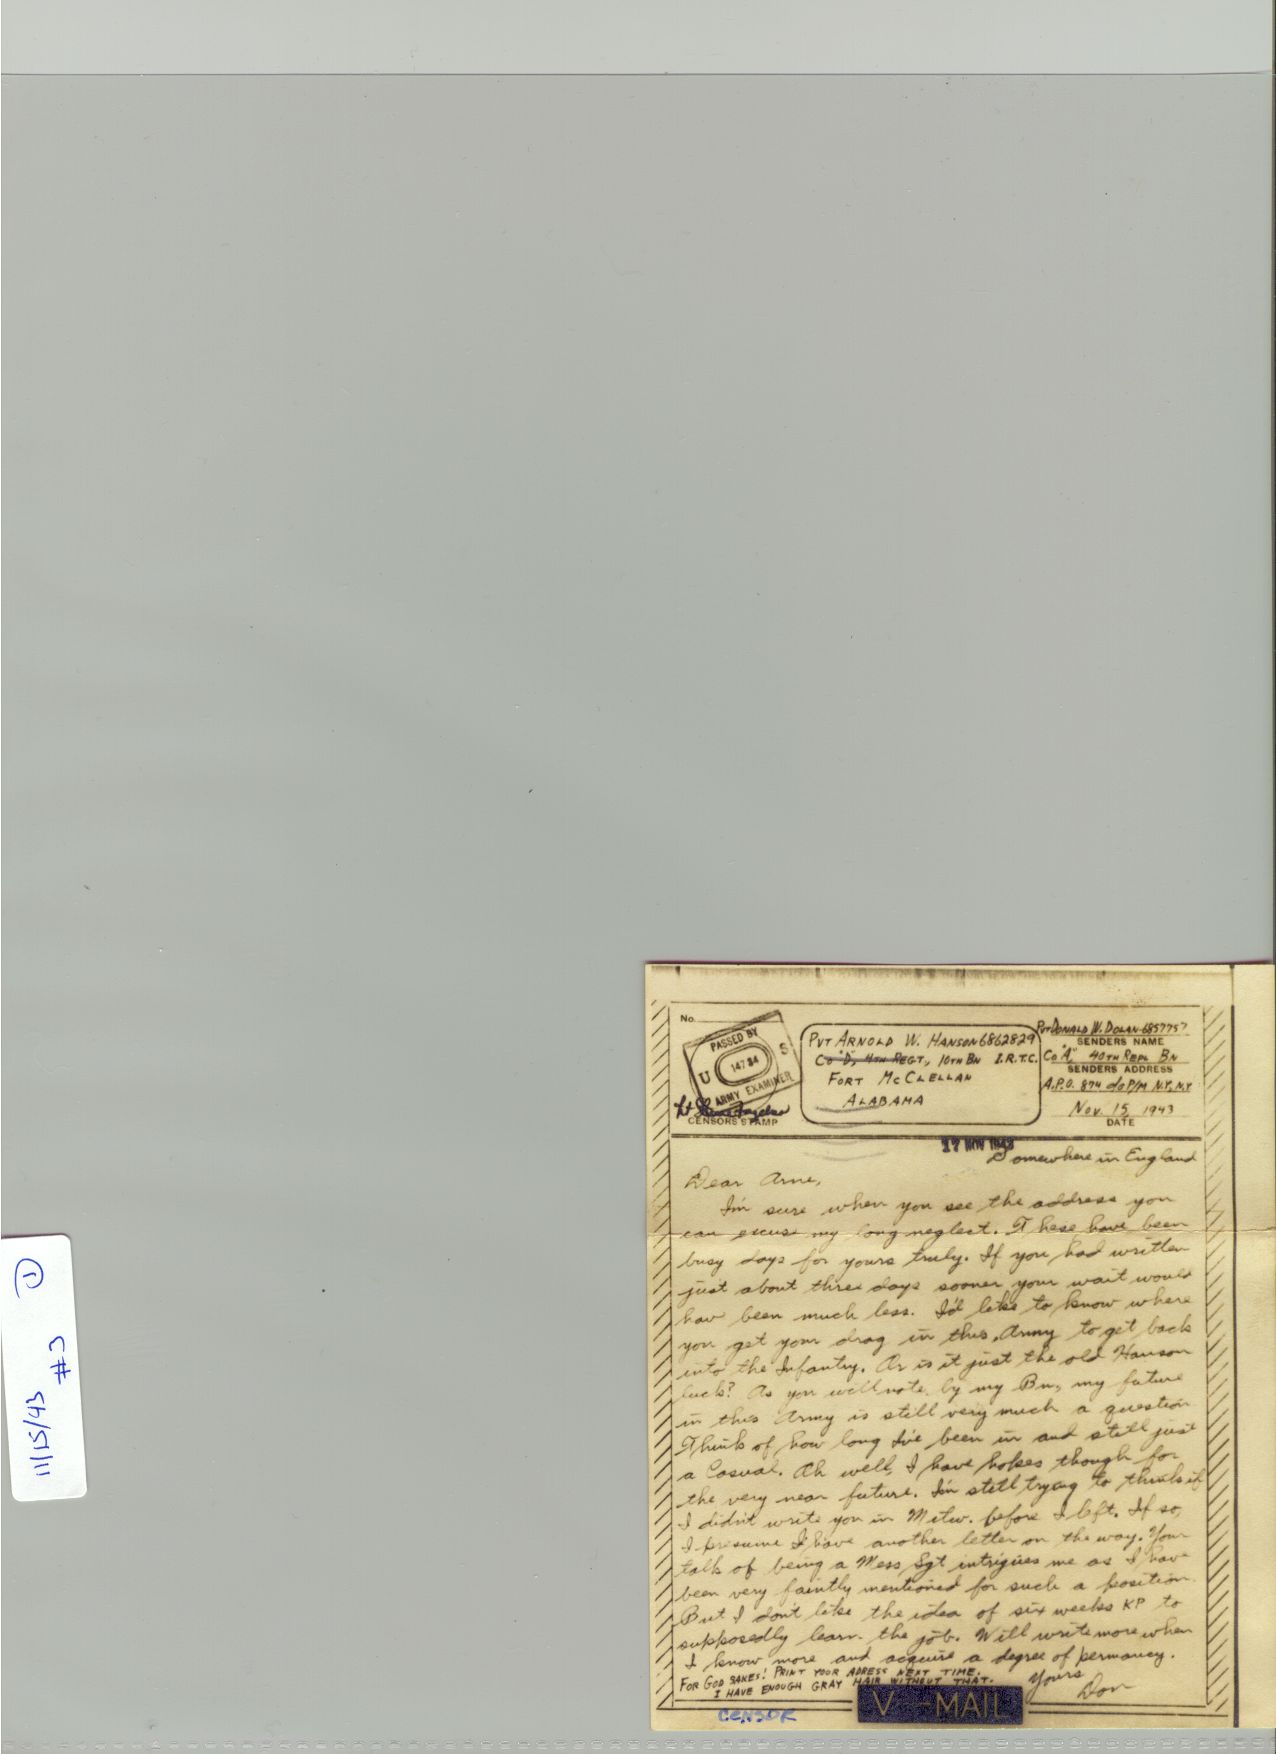 No.
PASSED BY
U S
14734
ARMY EXAMINER
Lt
CENSORS STAMP
PVT ARNOLD W. HANSON 6862829
Co "D", 4TH REGT., 10TH BN I.R.T.C.
FORT MCCLELLAN
ALABAMA
PVT DONALD W. DOLAN-6857757
SENDERS NAME
Co "A", 40TH REPL BN
SENDERS ADDRESS
A.P.O. 874 c/o P/M N.Y., N.Y
Nov. 15 1943
DATE
17 NOV 1943
Somewhere in England
Dear Arne,
I'm sure when you see the address you
can excuse my long neglect. These have been
busy days for yours truly. If you had written
just about three days sooner your wait would
hav been much less. I'd like to know where
you get your drag in this Army to get back
into the Infantry. Or is it just the old Hanson
luck? As you will note by my Bn, my future
in this Army is still very much a question
Think of how long I've been in and still just
a Casual. Ah well, I have hopes though for
the very near future. I'm still trying to think if
I didn't write you in Milw. before I left. If so,
I presume I have another letter on the way. Your
talk of being a Mess Sgt intrigues me as I have
been very faintly mentioned for such a position.
But I don't like the idea of six weeks KP to
supposedly learn the job. Will write more when
I know more and acquire a degree of permancy.
FOR GOD SAKES! PRINT YOUR ADRESS NEXT TIME.
I HAVE ENOUGH GRAY HAIR WITHOUT THAT.
Yours
Don
V-MAIL
CENSOR
11/15/43 ①
#3